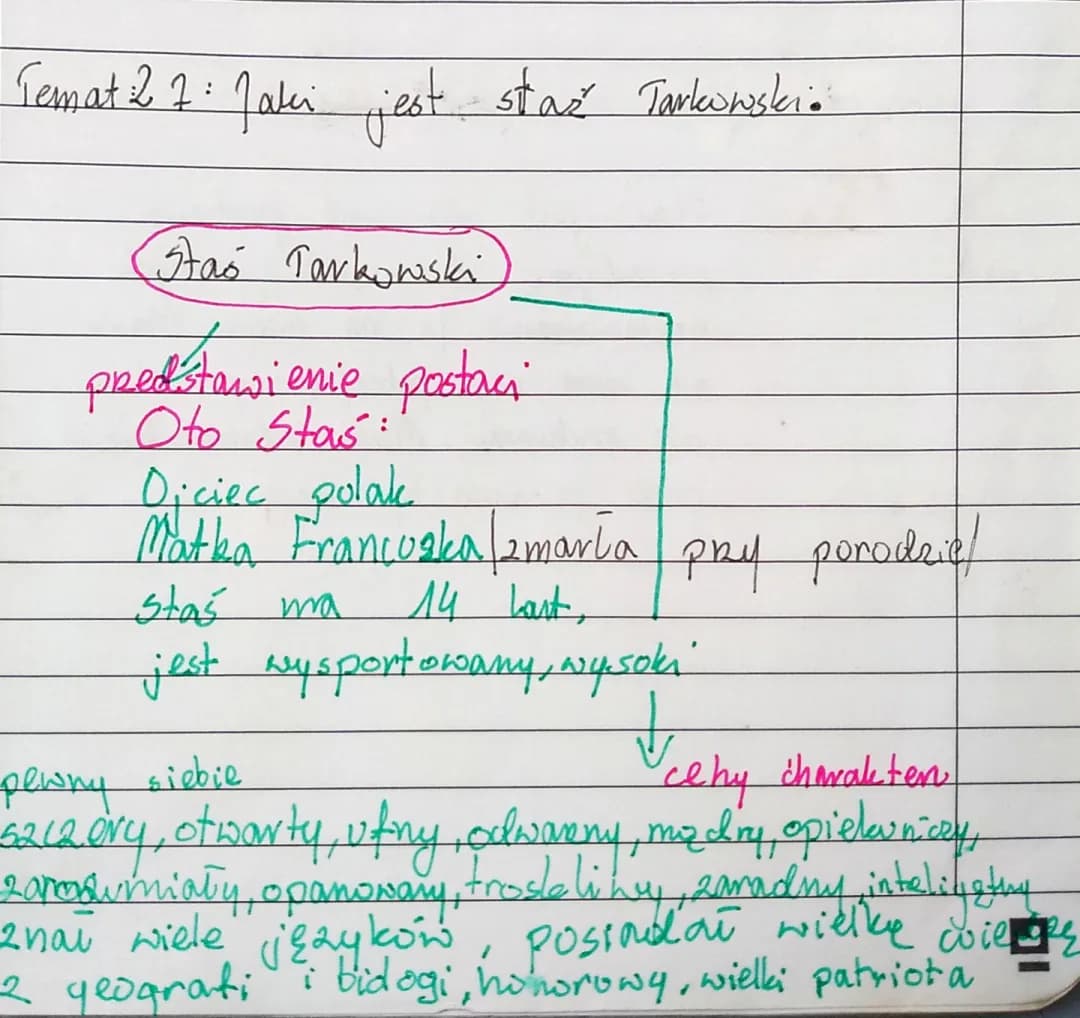 Temat 27: Jaki jest staś Tarkowski.
Staś Tarkowski
predstawienie postaci
Oto Staś:
Ojciec polak
Matka Francuska/zmarła przy porodzie/
Staś ma 14 lat,
jest wysportowany, wysoki
cehy charakteru
pewny siebie
szczery, otwarty, ufny, odważny, mądry, opiekuńczy,
zarozumiały, opanowany, troskliwy, zaradny, inteligętny
znał wiele języków, posiadał wielkę wiedzę
z geografi i biologi, honorowy, wielki patriota